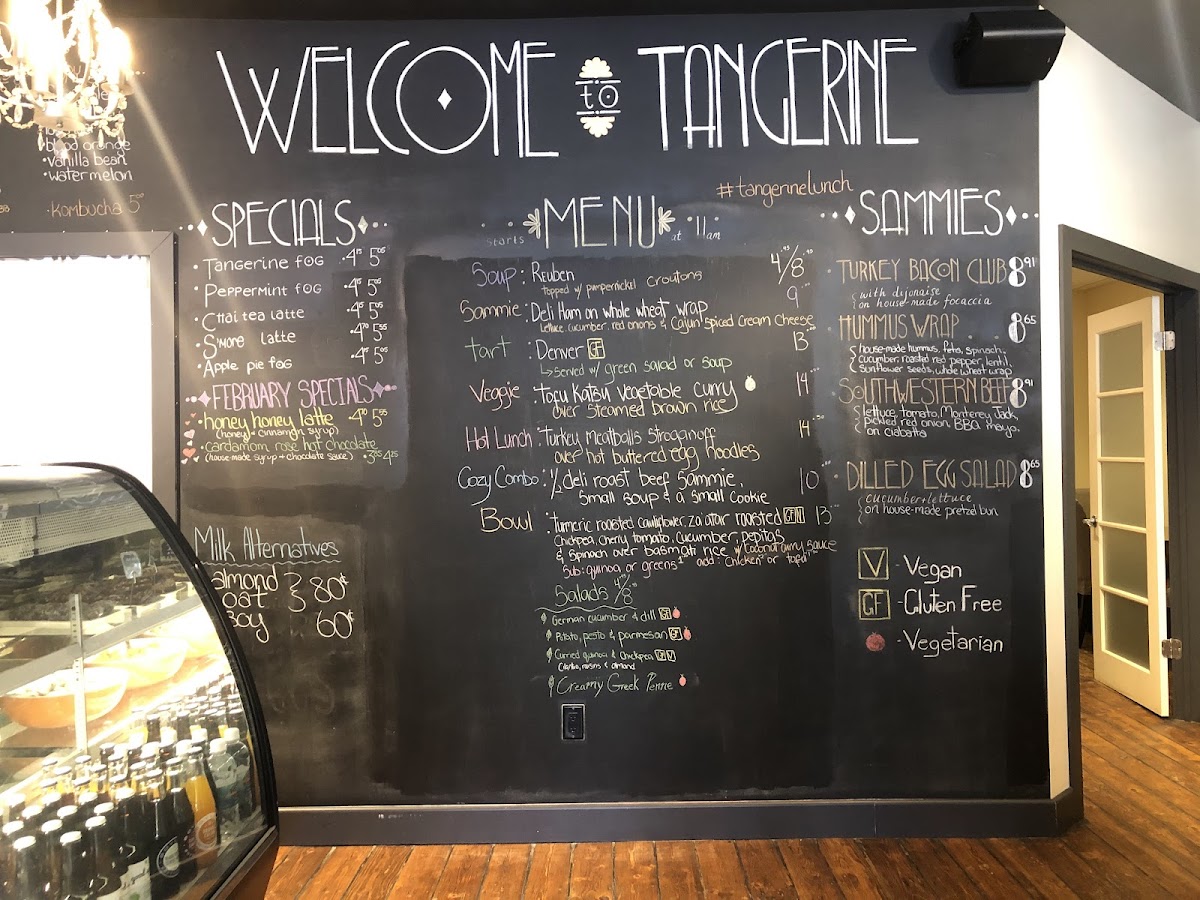 WELCOME to TANGERINE
• blood orange
• vanilla bean
• watermelon
• Kombucha 5
SPECIALS
• Tangerine fog
• Peppermint fog
• Chai tea latte
• S'more latte
• Apple pie fog
FEBRUARY SPECIALS
• honey honey latte
(honey + cinnamon syrup)
• cardamom rose hot chocolate
(house made syrup + chocolate sauce)
Milk Alternatives
almond
oat
80¢
Soy 60¢
#tangerinelunch
starts MENU at 11am
Soup: Reuben 4.95/8.95
topped w/ pumpernickel croutons
Sammie: Deli Ham on whole wheat wrap 9
Lettuce, cucumber, red onions & Cajun Spiced Cream Cheese
tart: Denver GF 13
↳ served w/ green salad or soup
Veggie: Tofu Katsu vegetable curry 14
over steamed brown rice
Hot Lunch: Turkey Meatballs Stroganoff 14
over hot buttered egg noodles
Cozy Combo: 1/2 deli roast beef Sammie, 10
Small soup & a small cookie
Bowl: Turmeric roasted cauliflower, za'atar roasted GF V 13
Chickpea, cherry tomato, cucumber, pepitas
& Spinach over basmati rice w/ Coconut curry sauce
Sub: quinoa or greens add: Chicken or tofu
Salads
German cucumber & dill GF
Potato, pesto & parmesan GF
Curried quinoa & Chickpea GF V
Cilantro, raisins & almond
Creamy Greek Penne
SAMMIES
TURKEY BACON CLUB 8.91
with dijonaise
on house-made focaccia
HUMMUS WRAP 8.65
house-made hummus, feta, spinach,
cucumber, roasted red pepper, lentil,
sunflower seeds, whole wheat wrap
SOUTHWESTERN BEEF 8.91
lettuce, tomato, Monterey Jack,
pickled red onion, BBQ mayo,
on ciabatta
DILLED EGG SALAD 8.65
cucumber + lettuce
on house-made pretzel bun
V - Vegan
GF - Gluten Free
- Vegetarian